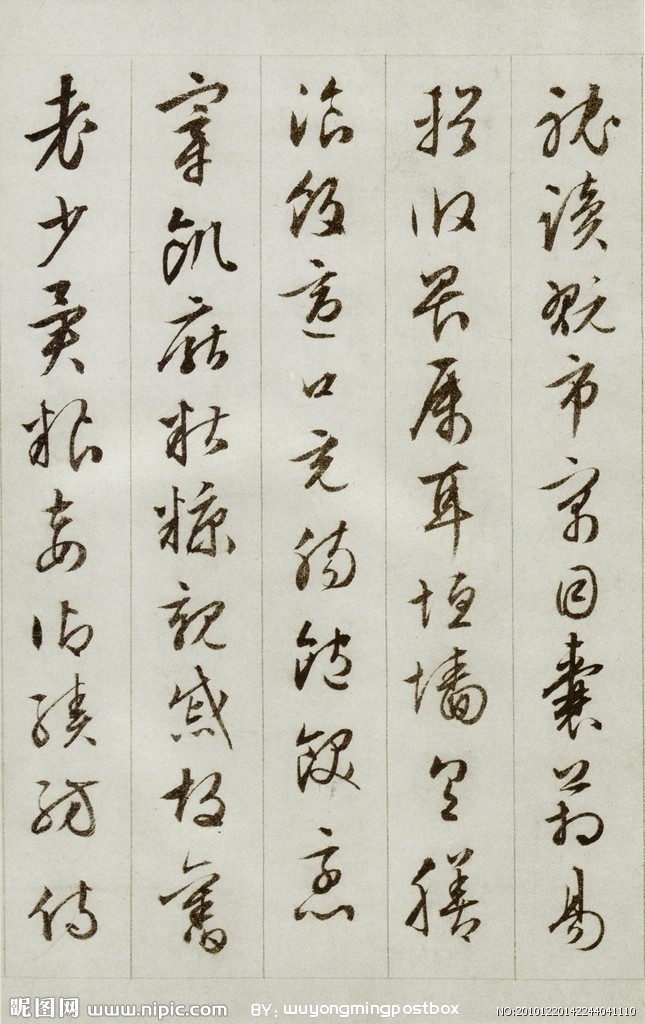 耽读玩市寓目囊箱易
輶攸畏属耳垣墙具膳
湌飯适口充肠饱饫烹
宰饥厌糟糠亲戚故旧
老少异粮妾御绩纺侍
昵图网 www.nipic.com BY: wuyongmingpostbox
NO:20101220142244041110